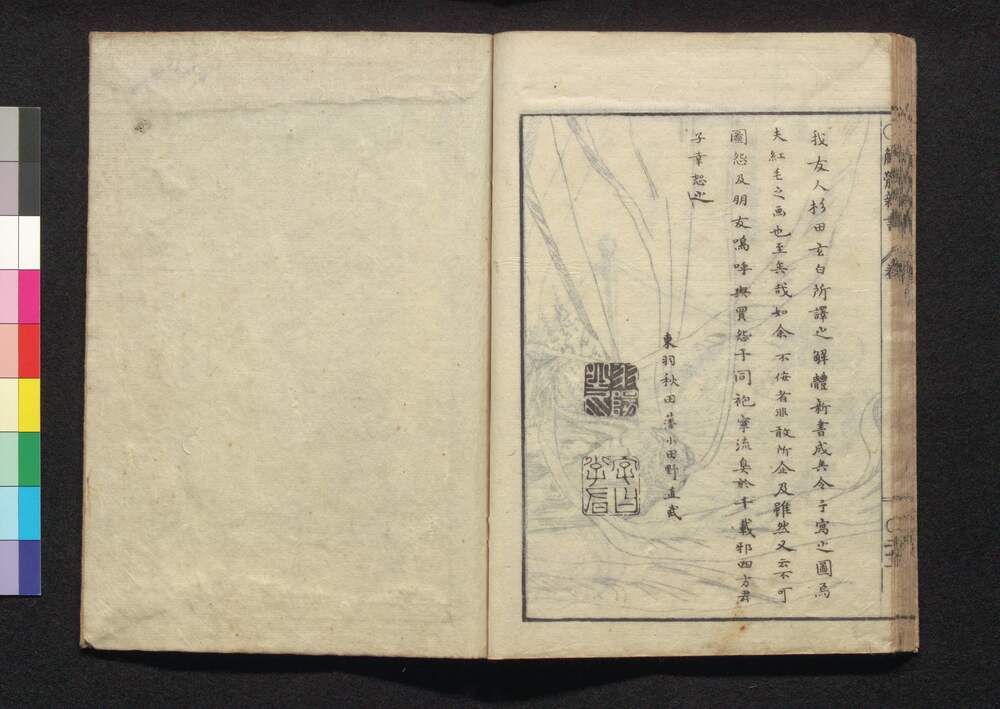 我友人杉田玄白所譯之解體新書成其令予寫之圖焉
夫紅毛之画也至矣哉如余不佞者非敢所企及雖然又云不可
圖怨及朋友嗚呼與買怨于同袍寧流臭於千載邪四方君
子幸恕之
東羽秋田藩小田野直武
解體新書